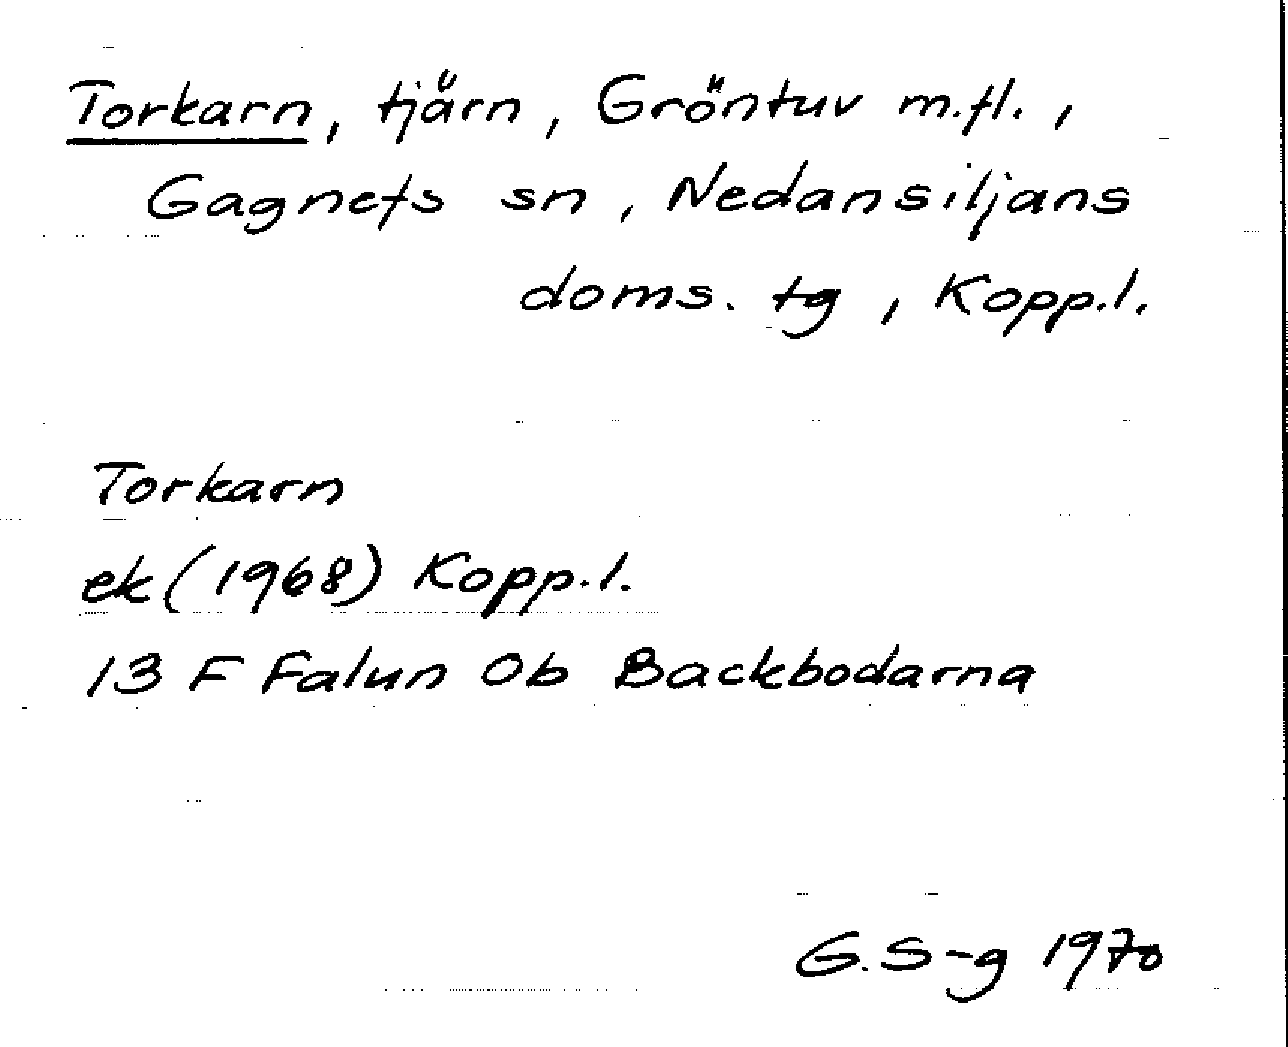 Torkarn, tjärn, Gröntuv m.fl.,
Gagnefs sn, Nedansiljans
doms. tg, Kopp.l.
Torkarn
ek (1968) Kopp.l.
13 F Falun 0b Backbodarna
G.S-g 1970